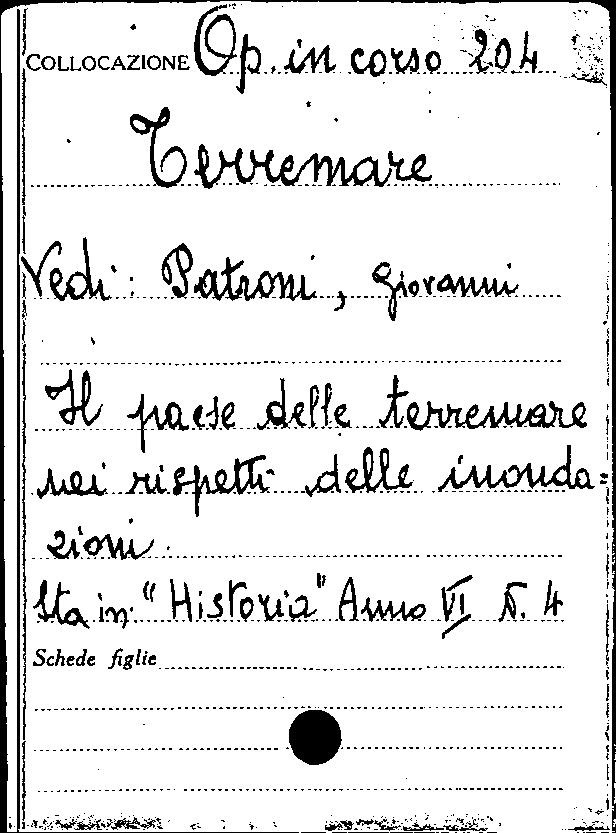 COLLOCAZIONE Op. in corso 204
Terremare
Vedi: Patroni, Giovanni
Il paese delle terremare
nei rispetti delle inonda=
zioni.
Sta in: "Historia" Anno VI N. 4
Schede figlie